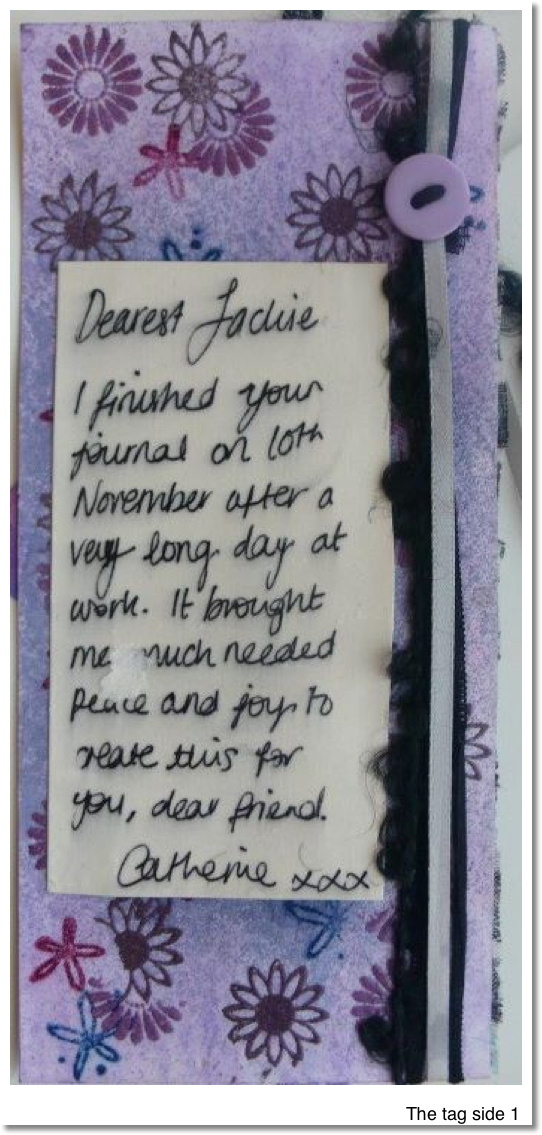 Dearest Jackie
I finished your
journal on 10th
November after a
very long day at
work. It brought
me much needed
peace and joy to
create this for
you, dear friend.
Catherine xxx
The tag side 1